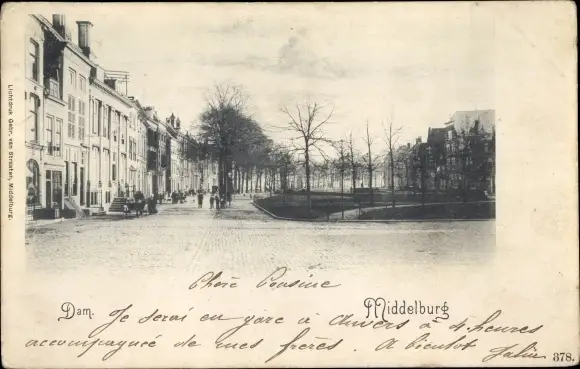 Lichtdruk Gebr. van Straaten, Middelburg.
Chère Cousine
Dam. Middelburg
Je serai en gare à Anvers à 4 heures
accompagné de mes frères. A bientôt
378.